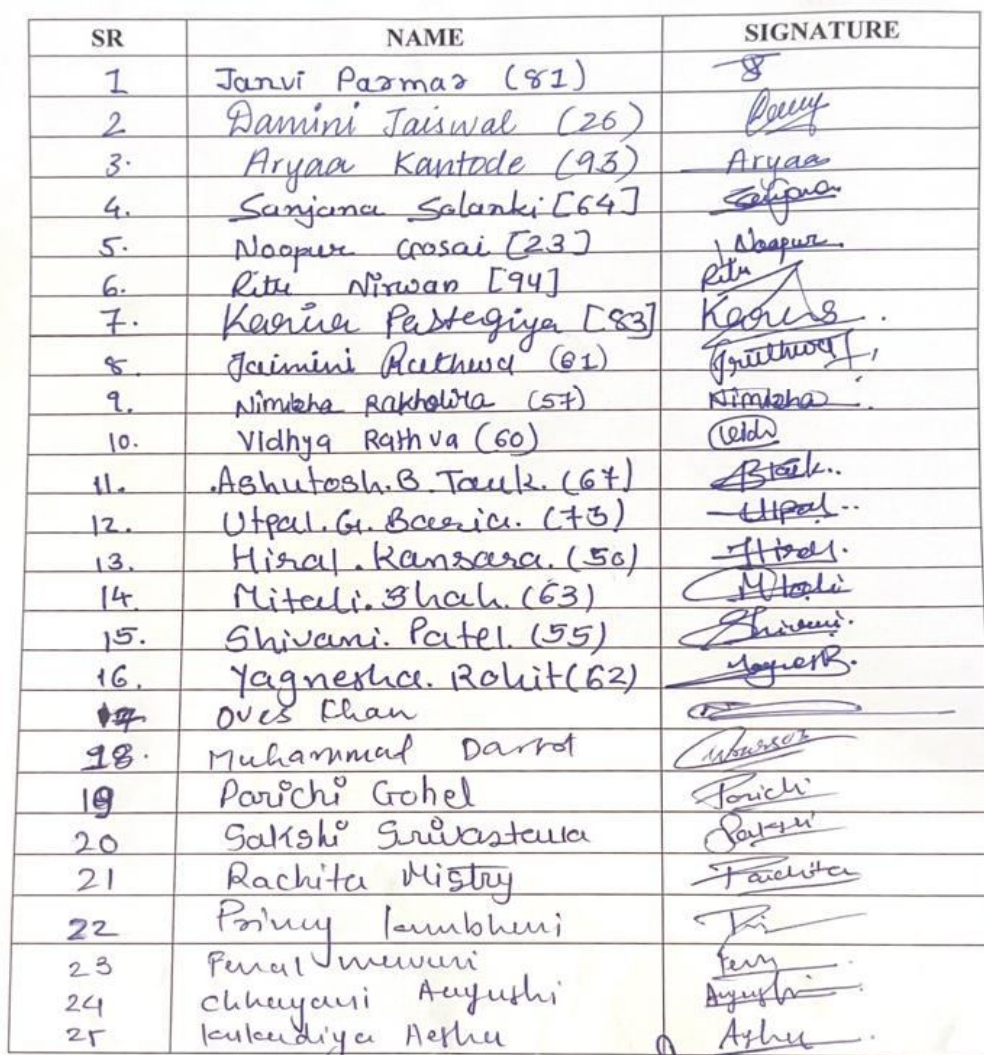 SR NAME SIGNATURE
1 Janvi Parmar (81)
2 Damini Jaiswal (26)
3. Aryaa Kantode (93) Aryaa
4. Sanjana Solanki [64] Sanjana
5. Noopur Gosai [23] Noopur.
6. Ritu Nirwan [94] Ritu
7. [83]
8. Jaimini Rathwa (61)
9. Nimisha Rakholiya (57) Nimisha
10. Vidhya Rathva (60) Vidh
11. Ashutosh.B.Tank. (67) BTank..
12. Utpal.G.Baria. (73) Utpal..
13. Hiral.Kansara. (50) Hiral.
14. Mitali.Shah. (63) Mitali
15. Shivani.Patel. (55) Shivani.
16. Yagnesha.Rohit (62)
17 Oves Khan
18. Muhammad
19 Parichi Gohel Parichi
20 Sakshi Srivastava Sakshi
21 Rachita Mistry Rachita
22 Princy
23 Fenal
24 Chhayani Aayushi Aayushi
25 Kukadiya Aeshu Ashu